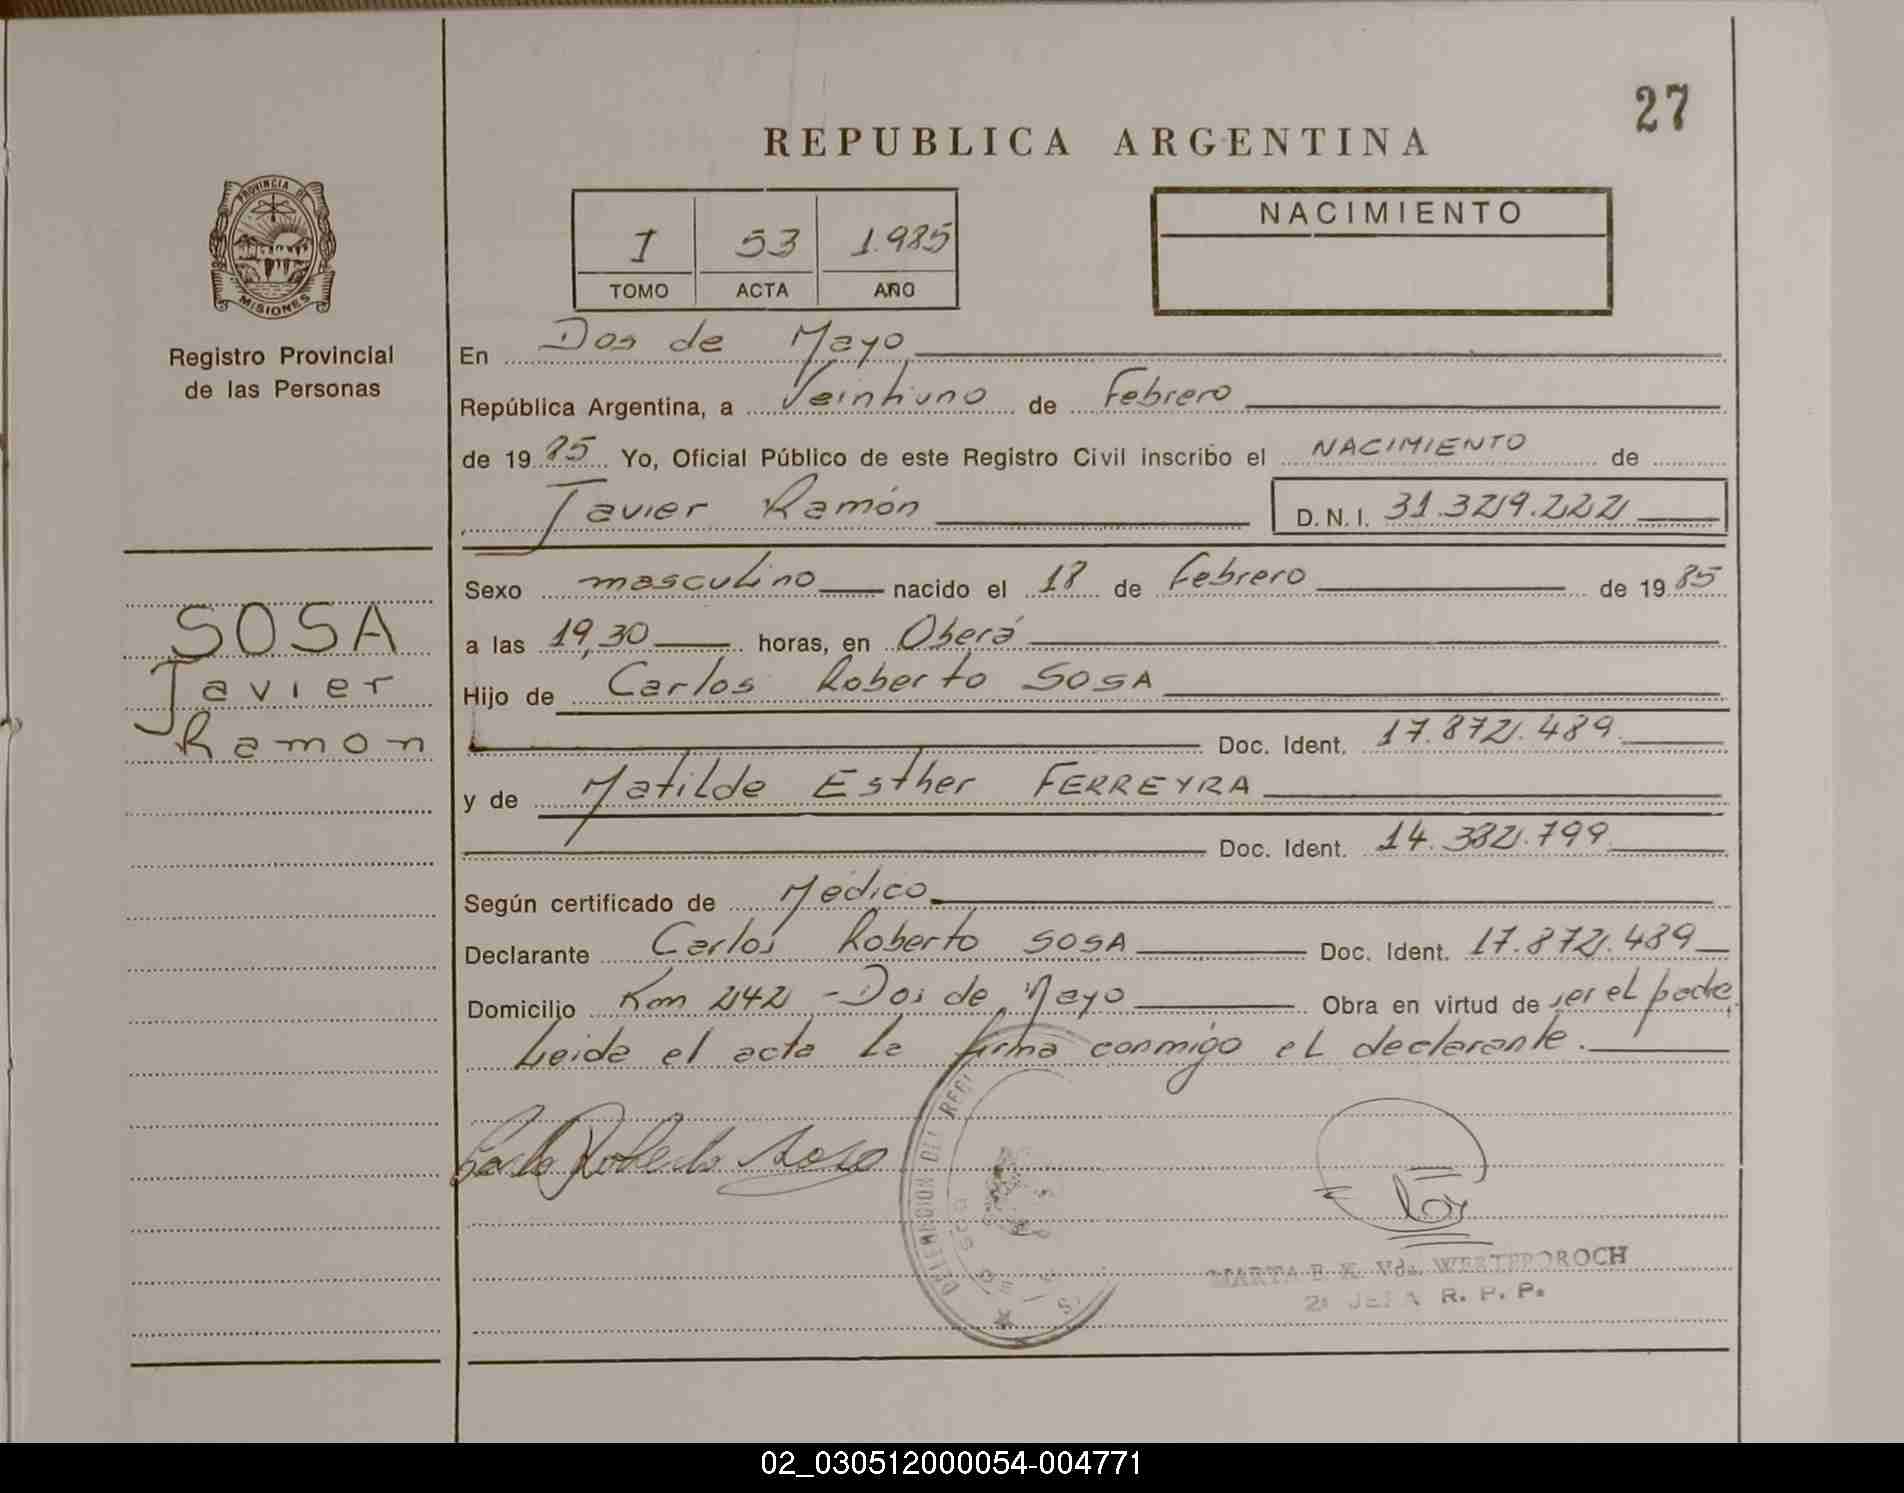 27
REPUBLICA ARGENTINA
PROVINCIA DE
MISIONES
Registro Provincial
de las Personas
I 53 1.985
TOMO ACTA AÑO
NACIMIENTO
En Dos de Mayo
República Argentina, a Veintiuno de Febrero
de 1985 Yo, Oficial Público de este Registro Civil inscribo el NACIMIENTO de
Javier Ramón D.N.I. 31.329.222
SOSA
Javier
Ramon
Sexo masculino nacido el 18 de Febrero de 1985
a las 19,30 horas, en Oberá
Hijo de Carlos Roberto SOSA
Doc. Ident. 17.872.489
y de Matilde Esther FERREYRA
Doc. Ident. 14.382.799
Según certificado de Médico
Declarante Carlos Roberto SOSA Doc. Ident. 17.872.489
Domicilio Km 242 - Dos de Mayo Obra en virtud de ser el padre
Leida el acta la firma conmigo el declarante.
Carlos Roberto Sosa
MARTA E. K. Vda. WERTEPOROCH
JEFA R. P. P.
02_030512000054-004771